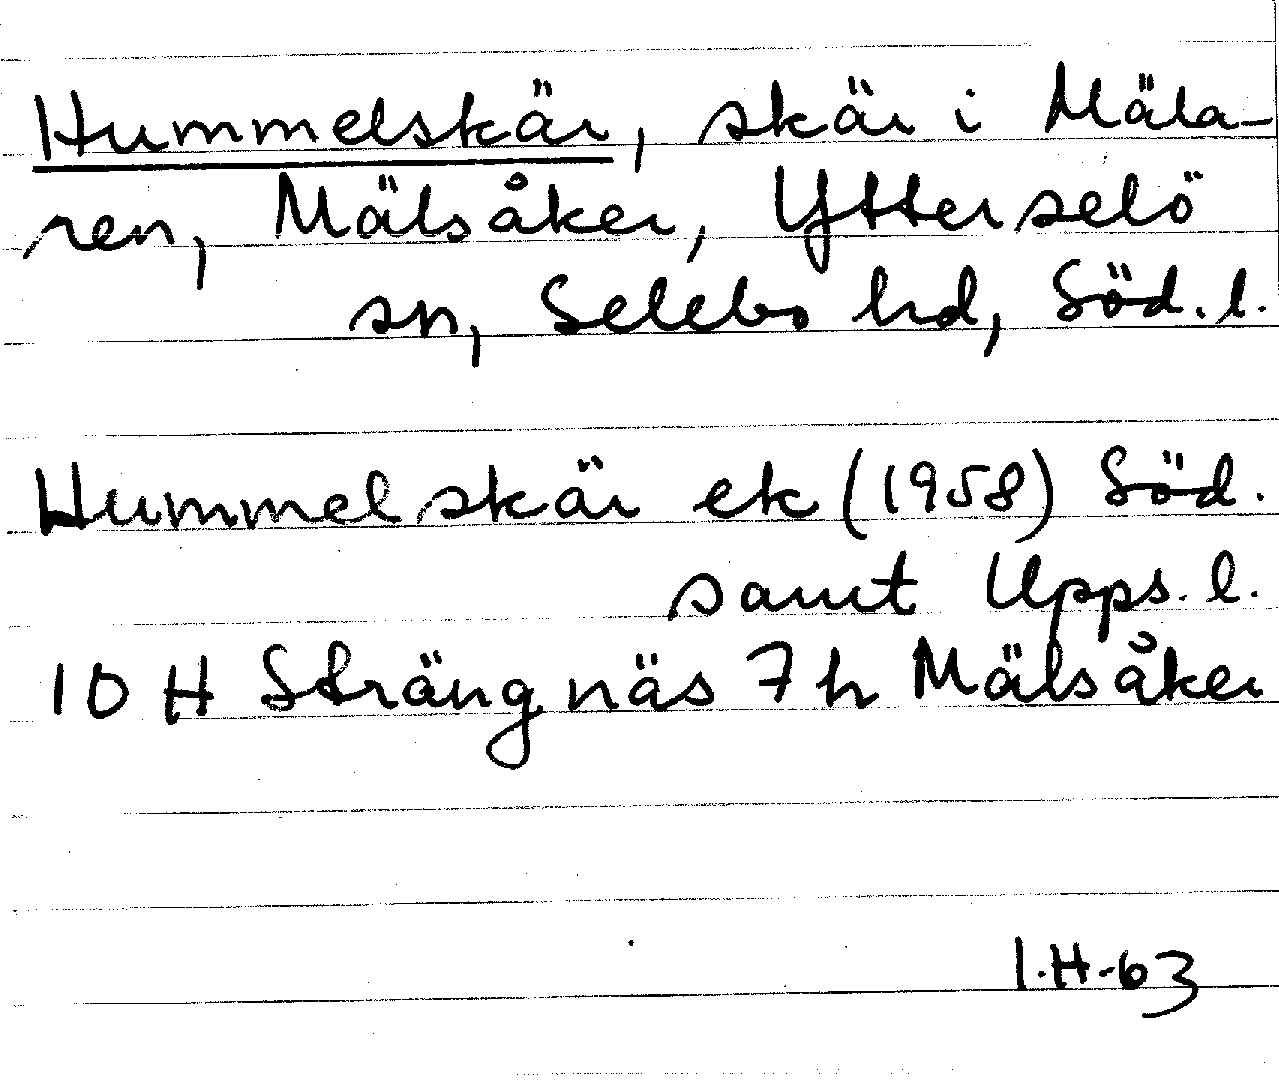 Hummelskär, skär i Mäla-
ren, Mälsåker, Ytterselö
sn, Selebo hd, Söd. l.
Hummelskär ek (1958) Söd.
samt Upps. l.
10 H Strängnäs 7 h Mälsåker
I.H.-63